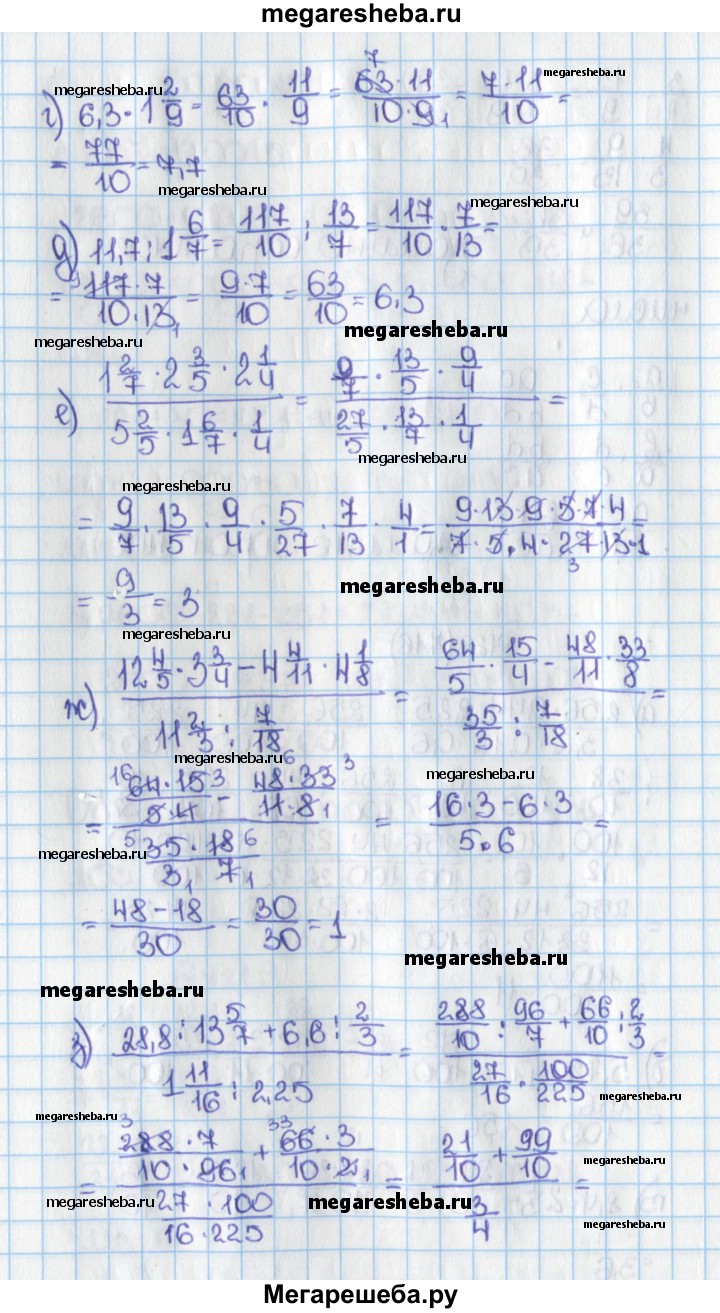 megaresheba.ru
megaresheba.ru
megaresheba.ru
г) 6,3·1 2/9 = 63/10 · 11/9 = 63·11/10·9 = 7·11/10 =
7
1
= 77/10 = 7,7
megaresheba.ru
megaresheba.ru
д) 11,7 : 1 6/7 = 117/10 : 13/7 = 117/10 · 7/13 =
= 117·7/10·13 = 9·7/10 = 63/10 = 6,3
9
1
megaresheba.ru
megaresheba.ru
е) 1 2/7 · 2 3/5 · 2 1/4 / 5 2/5 · 1 6/7 · 1/4 = 9/7 · 13/5 · 9/4 / 27/5 · 13/7 · 1/4 =
megaresheba.ru
megaresheba.ru
= 9/7 · 13/5 · 9/4 · 5/27 · 7/13 · 4/1 = 9·13·9·5·7·4/7·5·4·27·13·1 =
3
= 9/3 = 3
megaresheba.ru
megaresheba.ru
ж) 12 4/5 · 3 3/4 − 4 4/11 · 4 1/8 / 11 2/3 : 7/18 = 64/5 · 15/4 − 48/11 · 33/8 / 35/3 : 7/18 =
megaresheba.ru
megaresheba.ru
= 64·15/5·4 − 48·33/11·8 / 35·18/3·7 = 16·3−6·3/5·6 =
16 3 6 3
1
5 6
1 1
megaresheba.ru
= 48−18/30 = 30/30 = 1
megaresheba.ru
megaresheba.ru
з) 28,8 : 13 5/7 + 6,6 : 2/3 / 1 11/16 : 2,25 = 288/10 : 96/7 + 66/10 : 2/3 / 27/16 · 100/225 =
megaresheba.ru
megaresheba.ru
= 288·7/10·96 + 66·3/10·2 / 27·100/16·225 = 21/10 + 99/10 / 3/4 =
3 33
1 1
megaresheba.ru
megaresheba.ru
megaresheba.ru
megaresheba.ru
Мегарешеба.ру